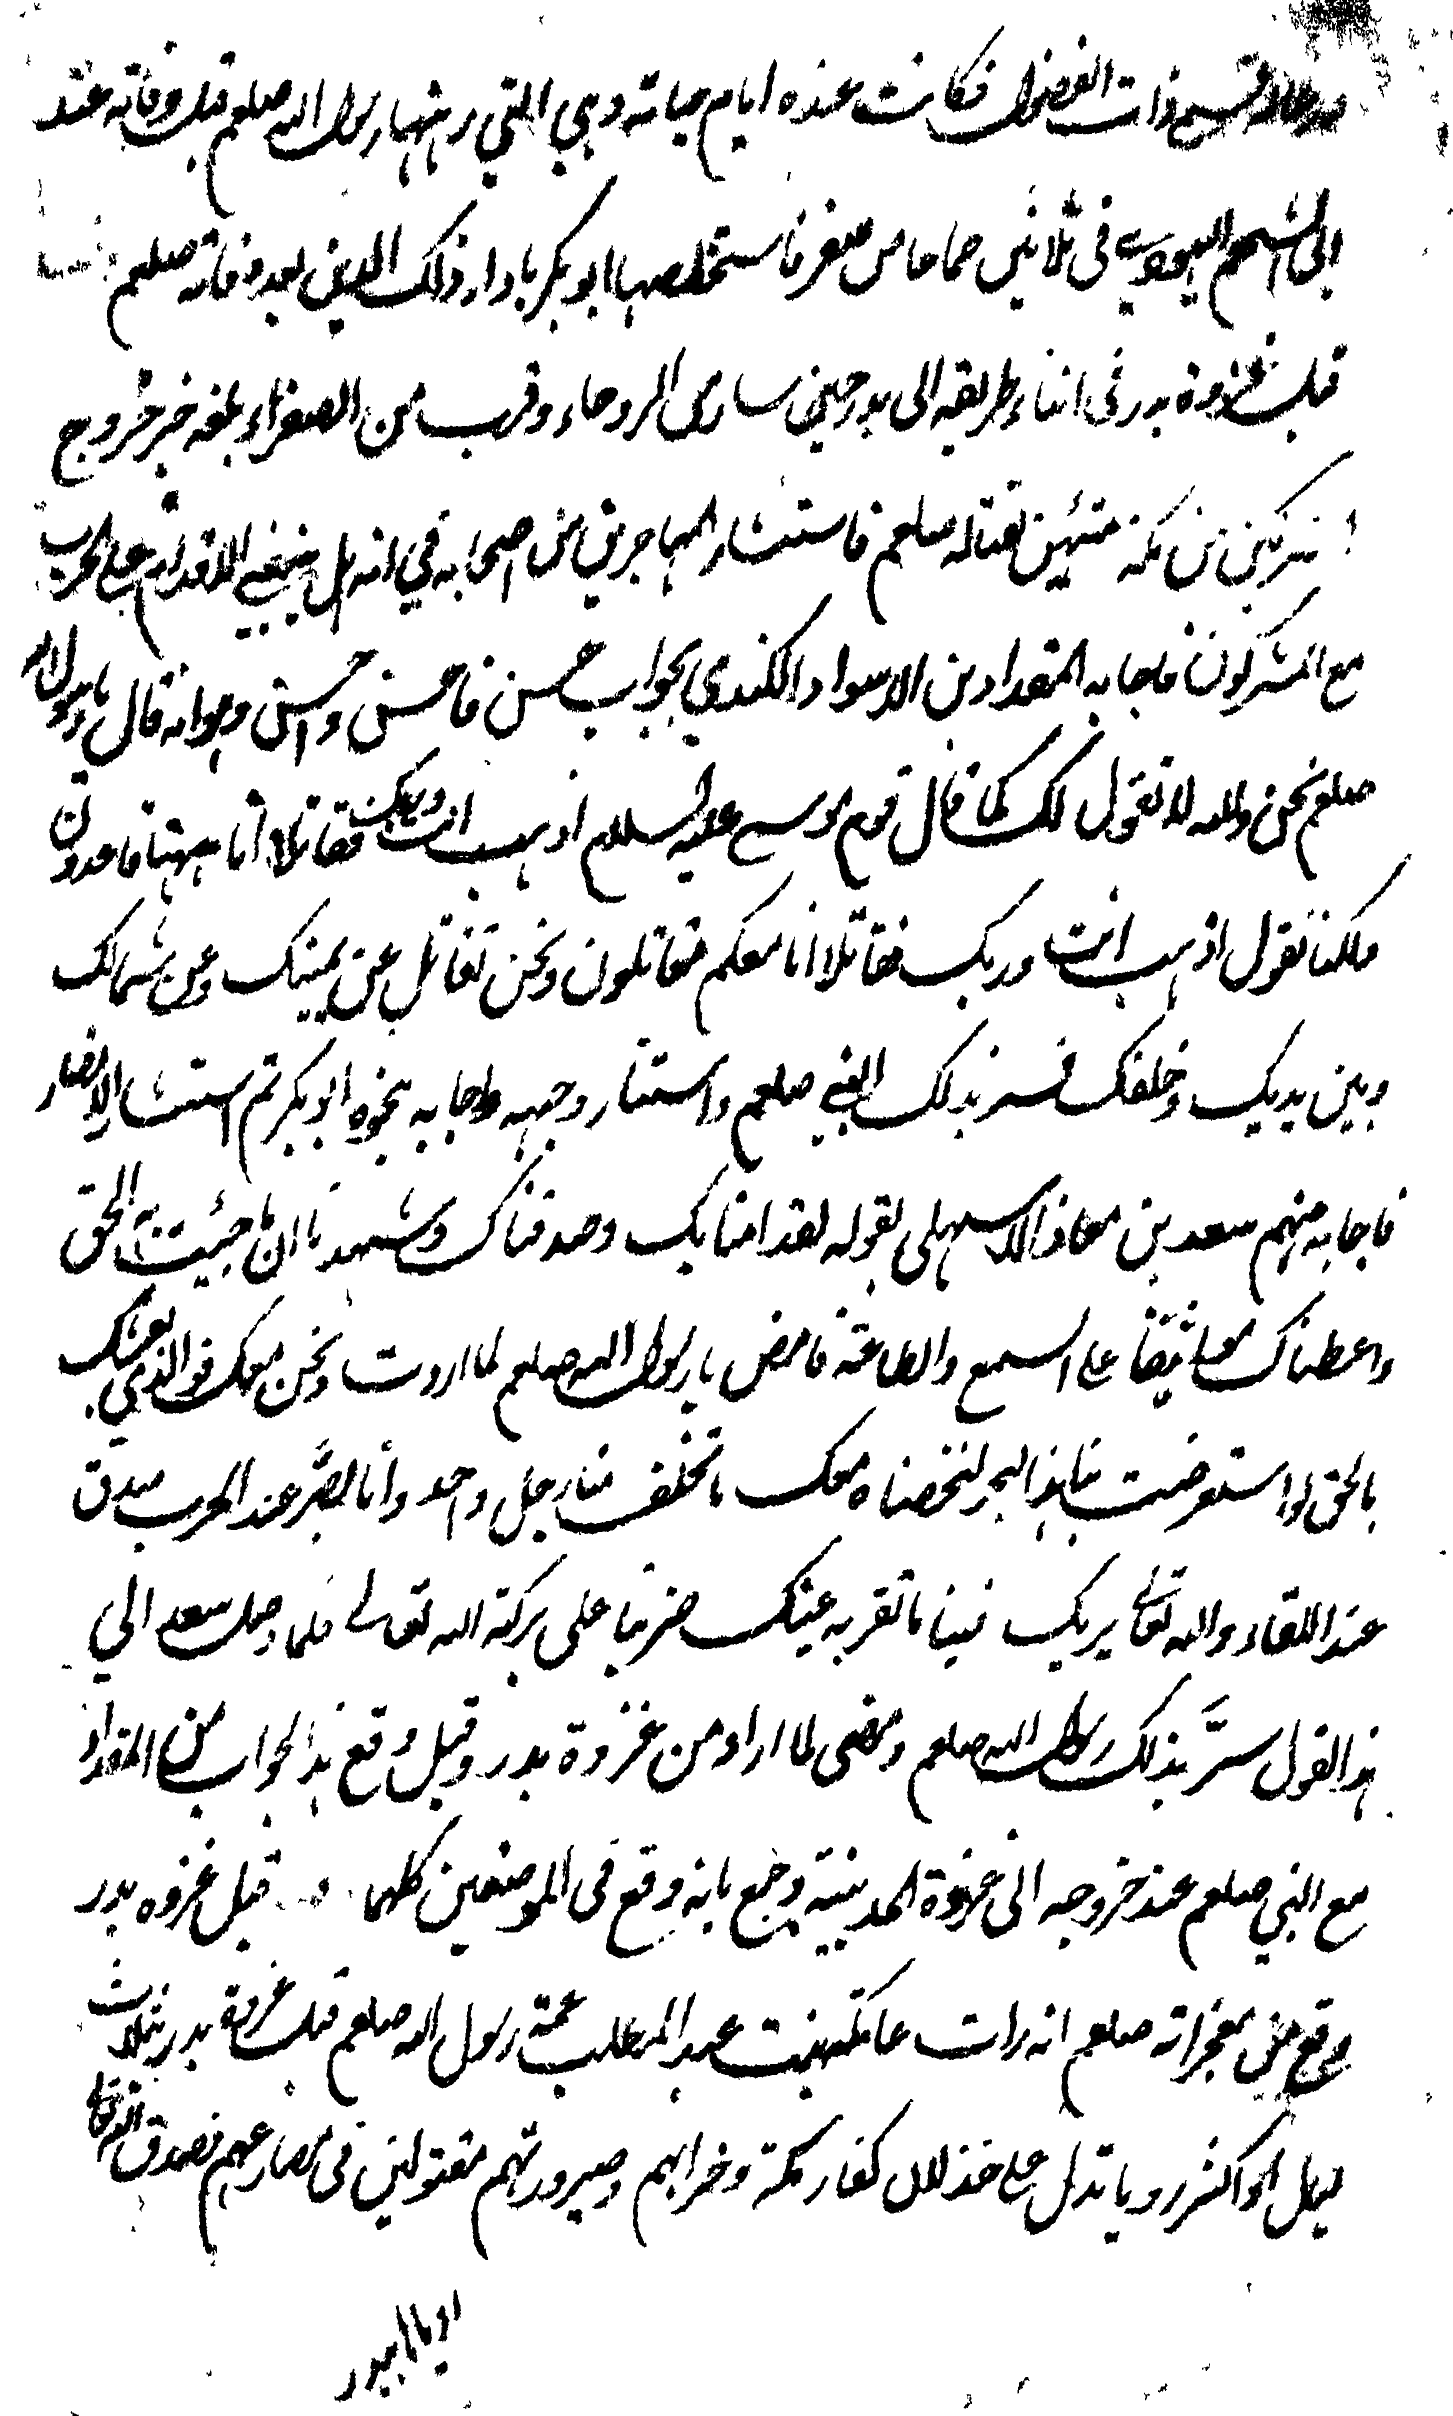 ذات الفضول فكانت عنده ايام حياته وهي التي رهنها رسول الله صلعم قبل وفاته عند
ابى الشحم اليهودي في ثلاثين صاعا من صفر فاستخلصها ابو بكر باداء ذلك الدين بعد وفاته صلعم
قبل غزوة بدر في اثناء طريقه الى بدر حين سار من الروحاء وقرب من الصفراء وبلغه خبر خروج
المشركين من مكة متهيئين لقتاله صلعم فاستشار المهاجرين من اصحابه في انه هل ينبغي الاقدام على الحرب
مع المشركون فاجابه المقداد بن الاسود الكندي بجواب حسن فاحسن واحسن وهو انه قال يا رسول الله
صلعم نحن والله لا نقول لك كما قال قوم موسى عليه السلام اذهب انت وربك فقاتلا انا ههنا قاعدون
ولكنا نقول اذهب انت وربك فقاتلا انا معكم مقاتلون ونحن نقاتل عن يمينك وعن شمالك
وبين يديك وخلفك فسر بذلك النبي صلعم واستنار وجهه واجابه بنحوه ابو بكر ثم استشار الانصار
فاجابه منهم سعد بن معاذ الاشهلي بقوله لقد امنا بك وصدقناك وشهدنا ان ما جئت به الحق
واعطيناك مواثيقنا على السمع والطاعة فامض يا رسول الله صلعم لما اردت ونحن معك فوالذي بعثك
بالحق لو استعرضت بنا هذا البحر لنخضناه معك ما تخلف منا رجل واحد وانا لصبر عند الحرب صدق
عند اللقاء والله تعالى يريك فينا ما تقر به عينك ضربنا على بركة الله تعالى فلما وصل سعد الي
هذا القول سرَّ بذلك رسول الله صلعم ومضى لما اراد من غزوة بدر وقيل وقع هذا الجواب من المقداد
مع النبي صلعم عند خروجه الى غزوة الحديبية وجمع بانه وقع في الموضعين كلهما و قبل غزوه بدر
وقع من معجزاته صلعم انه رات عاتكة بنت عبد المطلب عمة رسول الله صلعم قبل غزوة بدر بثلاث
ليال او اكثر رويا تدل على خذلان كفار مكة وخرابهم وصيرورتهم مقتولين في مصارعهم فصدق الله تعالى